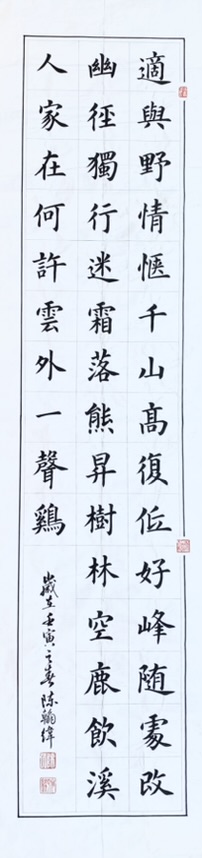 適與野情愜千山高復低好峰随處改
幽徑獨行迷霜落熊昇樹林空鹿飲溪
人家在何許雲外一聲鷄
歲在壬寅之春陈翰緯